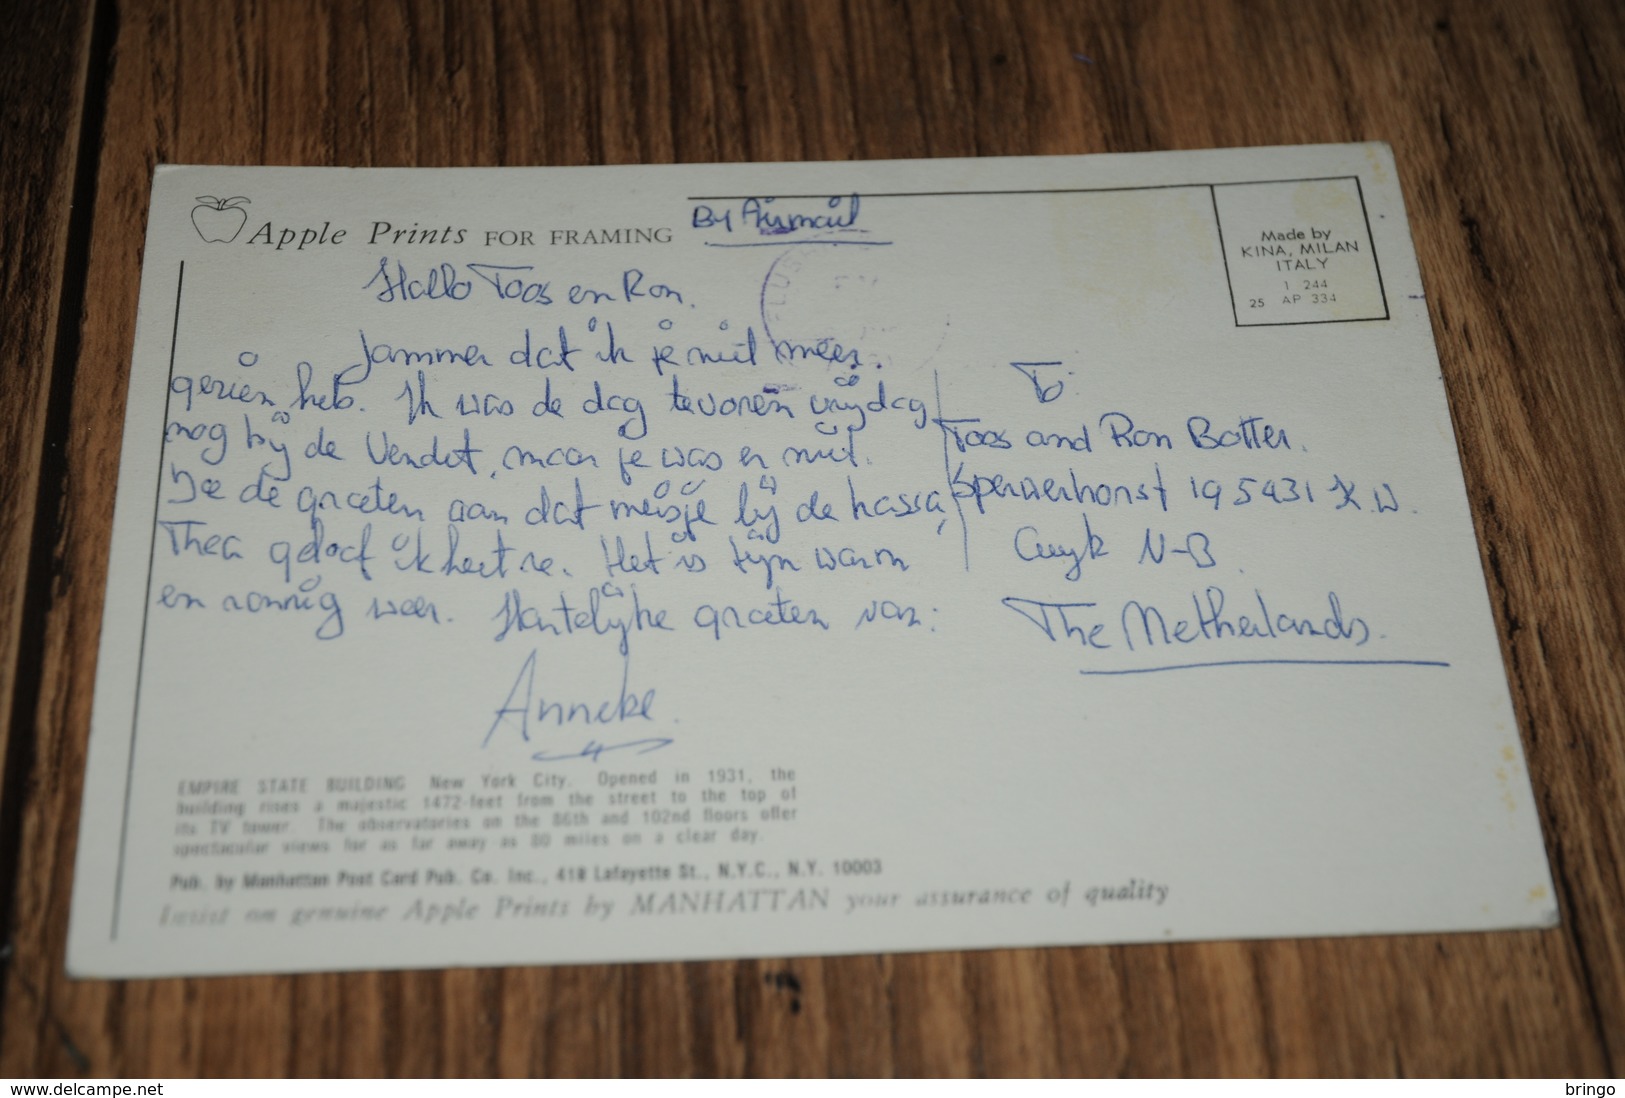 Apple Prints FOR FRAMING
By Airmail
Made by
KINA, MILAN
ITALY
1 244
25 AP 334
Hallo Toos en Ron.
Jammer dat ik je niet meer
gezien heb. Ik was de dag tevoren vrijdag
nog bij de Vendet, maar je was er niet.
Doe de groeten aan dat meisje bij de kassa,
Thea geloof ik heet ze. Het is fijn warm
en zonnig weer. Hartelijke groeten van:
Anneke
To
Toos and Ron Botter.
Sperwerhorst 19 5431 K.W.
Cuyk N-B.
The Netherlands.
EMPIRE STATE BUILDING New York City. Opened in 1931, the
building rises a majestic 1472-feet from the street to the top of
its TV tower. The observatories on the 86th and 102nd floors offer
spectacular views for as far away as 80 miles on a clear day.
Pub. by Manhattan Post Card Pub. Co. Inc., 418 Lafayette St., N.Y.C., N.Y. 10003
Insist on genuine Apple Prints by MANHATTAN your assurance of quality
https://www.delcampe.net
bringo